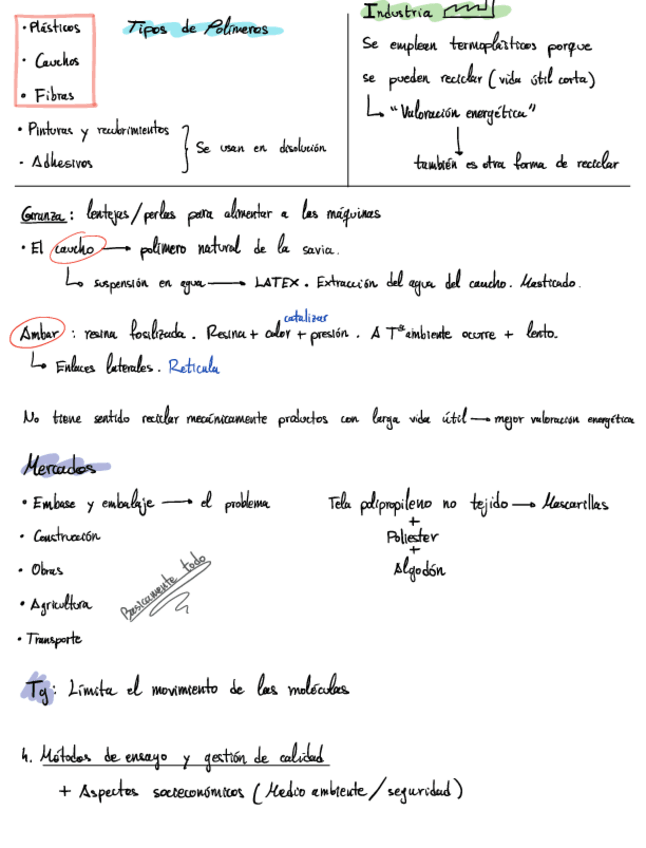 Tipos de Polímeros
• Plásticos
• Cauchos
• Fibras
• Pinturas y recubrimientos
• Adhesivos
Se usan en disolución
Industria
Se emplean termoplásticos porque
se pueden reciclar (vida útil corta)
"Valoración energética"
también es otra forma de reciclar
Granza: lentejas/perlas para alimentar a las máquinas
• El caucho → polímero natural de la savia.
suspensión en agua → LATEX. Extracción del agua del caucho. Masticado.
catalizar
Ambar: resina fosilizada. Resina + calor + presión. A Tª ambiente ocurre + lento.
Enlaces laterales. Retícula
No tiene sentido reciclar mecánicamente productos con larga vida útil → mejor valoración energética
Mercados
• Embase y embalaje → el problema
• Construcción
• Obras
• Agricultura
• Transporte
Basicamente todo
Tela polipropileno no tejido → Mascarillas
+
Poliester
+
Algodón
Tg: Limita el movimiento de las moléculas
4. Métodos de ensayo y gestión de calidad
+ Aspectos socioeconómicos (Medio ambiente/seguridad)